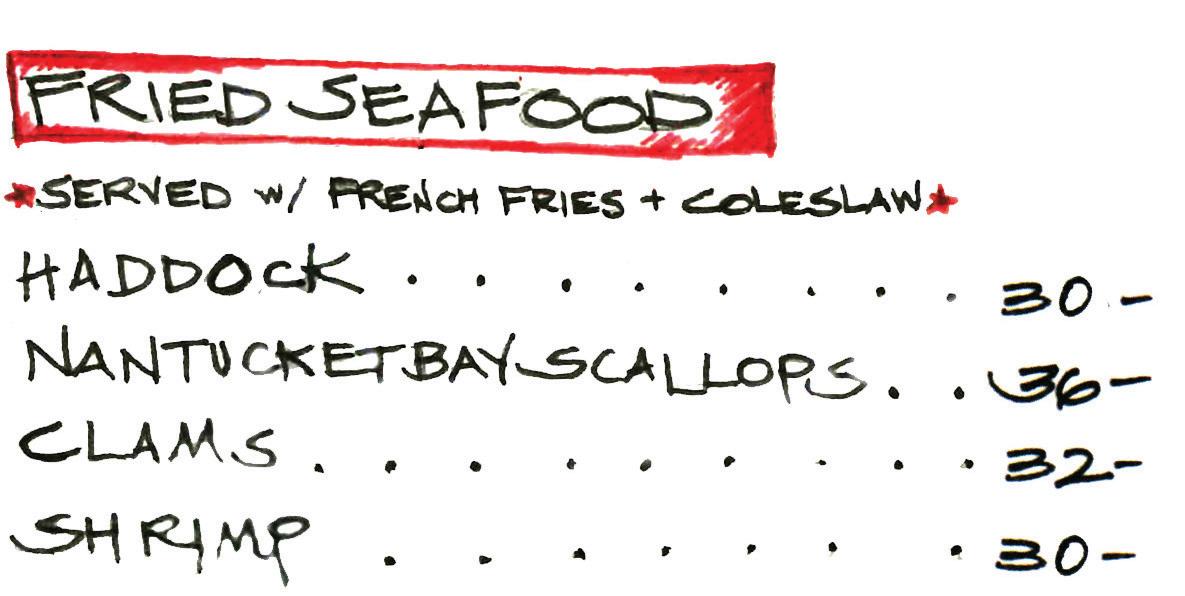 FRIED SEAFOOD
★SERVED W/ FRENCH FRIES + COLESLAW★
HADDOCK . . . . . . . . 30-
NANTUCKET BAY SCALLOPS . . 36-
CLAMS . . . . . . . . . 32-
SHRIMP . . . . . . . 30-